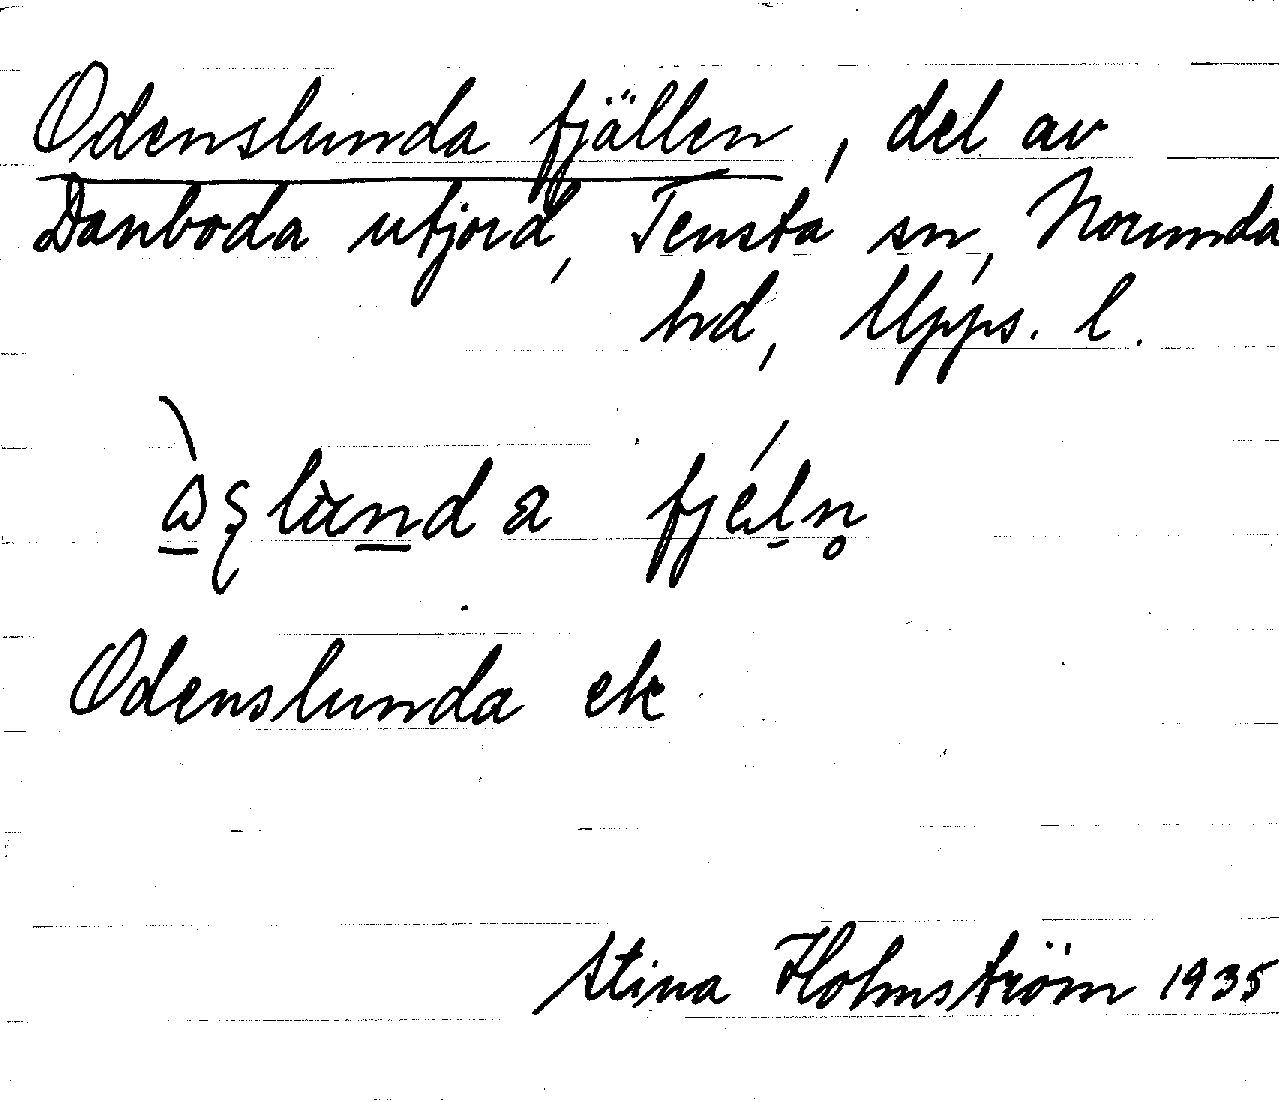 Odenslunda fjällen, del av
Danboda utjord, Tensta sn, Norunda
hd, Upps. l.
Odenslunda ek
Stina Holmström 1935